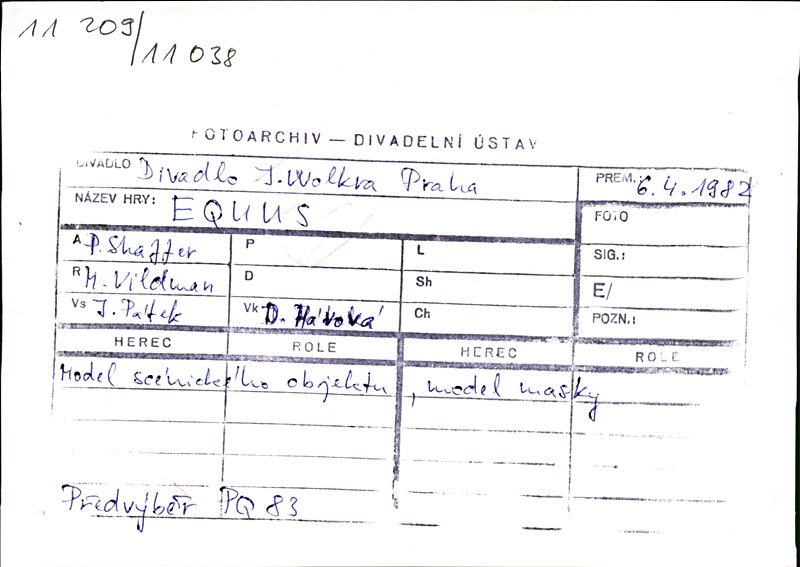 11 209/
11 038
FOTOARCHIV — DIVADELNÍ ÚSTAV
DIVADLO Divadlo J. Wolkra Praha
PREM.: 6.4.1982
NÁZEV HRY: EQUUS
FOTO
A P. Shaffer P L
SIG.:
R M. Vildman D Sh
E/
Vs J. Pátek Vk D. Hávová Ch
POZN.:
HEREC ROLE HEREC ROLE
Model scénického objektu, model masky
Předvýběr PQ 83